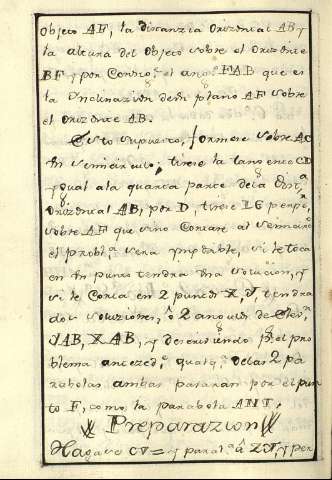 objeto AF, la distanzia Orizontal AB, y
la altura del objeto sobre el Orizonte
BF y por Consig.te el ang.o FAB que es
la Inclinazion deste plano AF sobre
el Orizonte AB.
Esto supuesto, formese sobre AC
Un semicirculo; tirese la tangente CD
ygual ala quarta parte dela dist.a
Orizontal AB, por D, tirese IG perp.r
sobre AF que sino Cortare al semicirc.o
el probl.a sera ympos̃ible, si le toca
en Un punto tendra Una soluzion, y
si le Corta en 2 puntos X, I, tendra
dos soluziones, o 2 angulos de Elev.n
IAB, XAB, y descriuiendo p.r el pro
blema anteced.te qualq.a delas 2 pa
rabolas ambas pasaran por el pun
to F, como la parabola AHI.
Preparazion
Hagase = y paral.a â y per